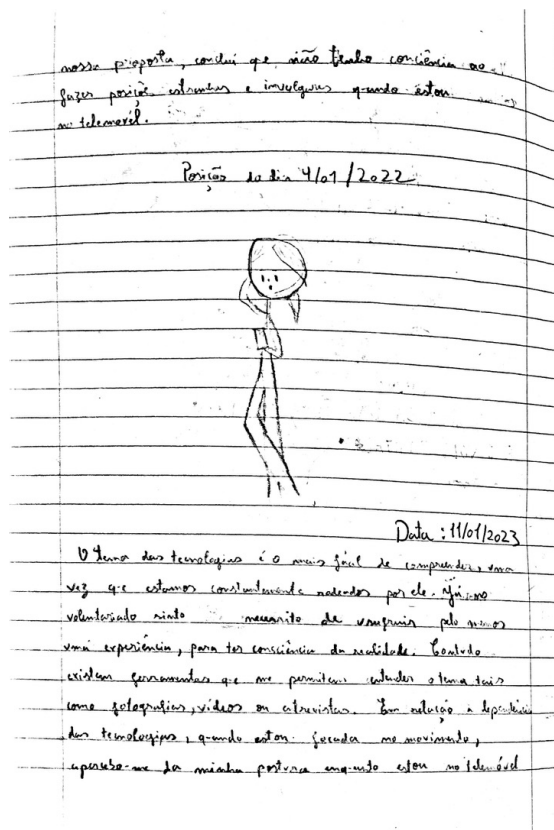 nossa proposta, conclui que não tenho consciência ao
fazer posições estranhas e invulgares quando estou
no telemóvel.
Posição do dia 4/01/2022
Data : 11/01/2023
O tema das tecnologias é o mais fácil de compreender, uma
vez que estamos constantemente rodeados por ele. Já no
voluntariado sinto necessito de usufruir pelo menos
uma experiência, para ter consciência da realidade. Contudo
existem ferramentas que me permitem entender o tema tais
como fotografias, vídeos ou entrevistas. Em relação à dependência
das tecnologias, quando estou focada no movimento,
apercebo-me da minha postura enquanto estou no telemóvel